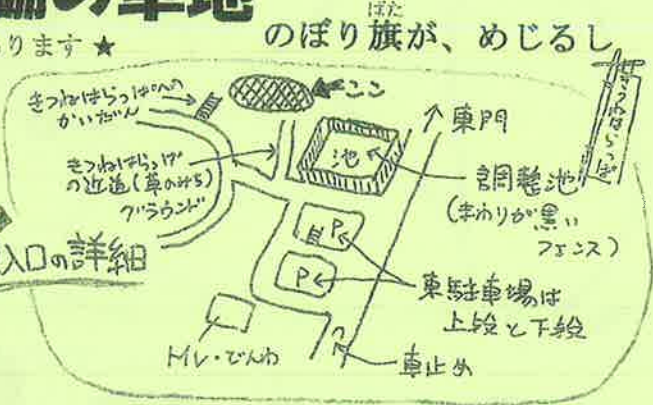 脇の草地
ります★
のぼり旗が、めじるし
ばた
きつねはらっぱへの
かいだん
ココ
東門
きつねはらっぱ
きつねはらっぱ
の近道(草のみち)
グラウンド
池
調整池
(まわりが黒い
フェンス)
入口の詳細
P
P
東駐車場は
上段と下段
トイレ・でんわ
車止め